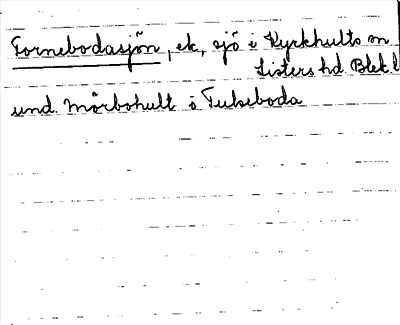 Tornebodasjön, ek, sjö i Kyrkhults sn
Listers hd Blek l
und. Mörbohult o Tulseboda